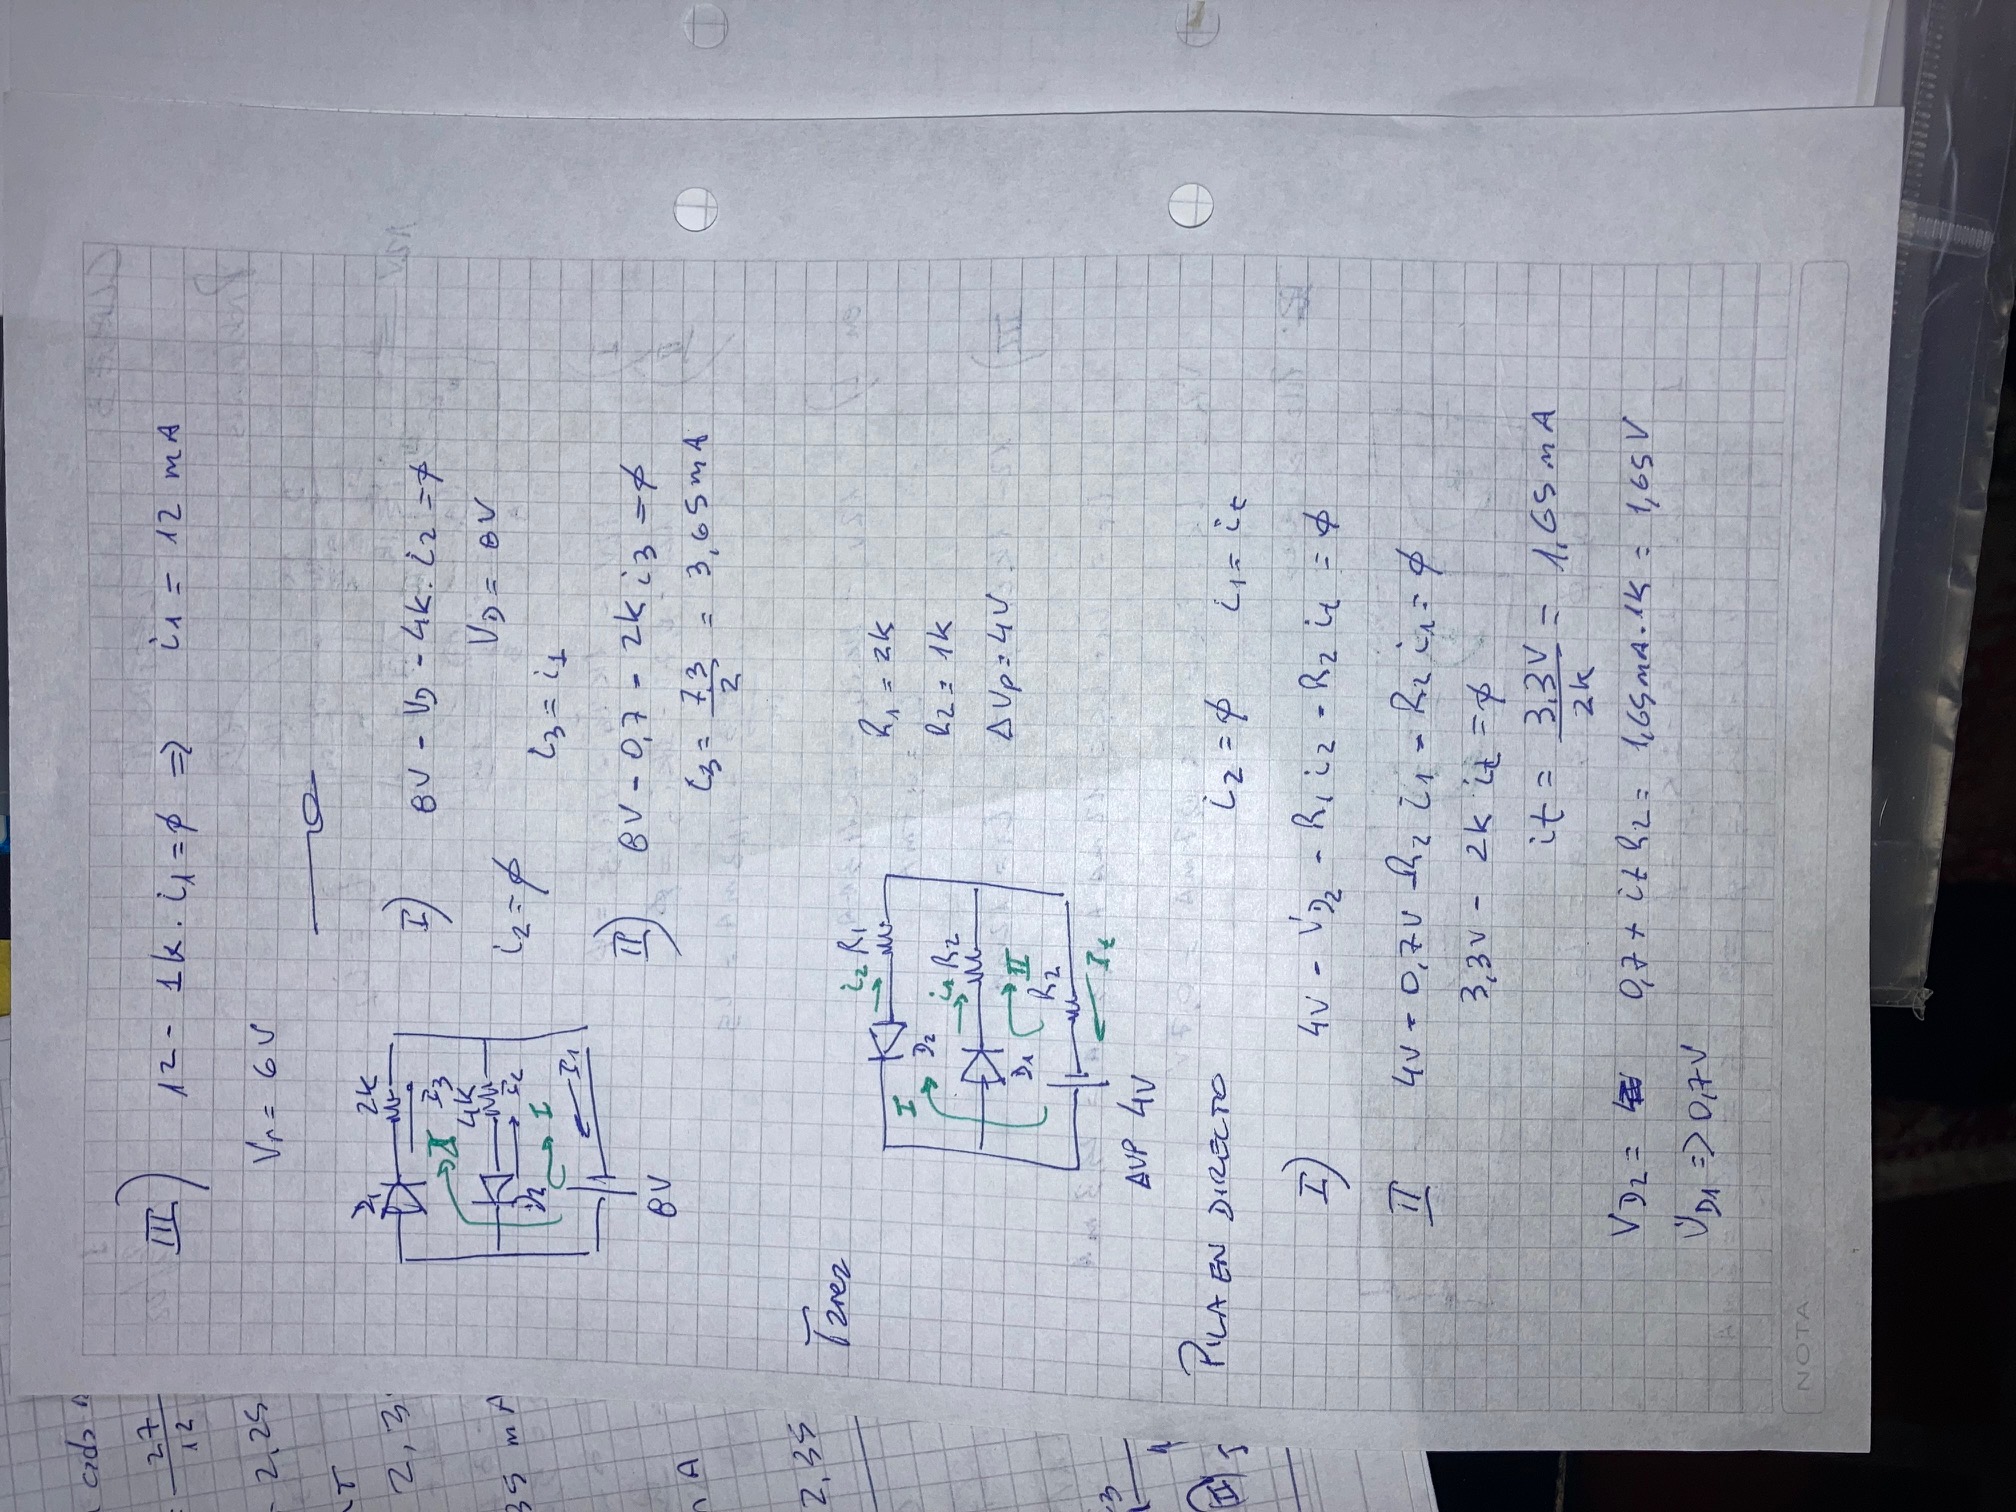 cada
27
12
2,25
2,3
35 mA
A
2,35
III) 12 - 1k . i1 = ϕ => i1 = 12 mA
Vr = 6V
D1 2k
II I3
4k
D2 I2
I
I1
8V
I) 8V - VD - 4k . i2 = ϕ
VD = 8V
i2 = ϕ
i3 = i1
II) 8V - 0,7 - 2k i3 = ϕ
i3 = 7,3 / 2 = 3,65 mA
Tarea
i2 R1
I D2
i1 R2
D1 II
R2
It
ΔVP 4V
R1 = 2k
R2 = 1k
ΔVp = 4V
PILA EN DIRECTO i2 = ϕ i1 = it
I) 4V - VD2 - R1 i2 - R2 it = ϕ
II 4V - 0,7V - R2 i1 - R2 i1 = ϕ
3,3V - 2k it = ϕ
it = 3,3V / 2k = 1,65 mA
VD2 = 0,7 + it R2 = 1,65mA . 1k = 1,65 V
VD1 => 0,7V
NOTA